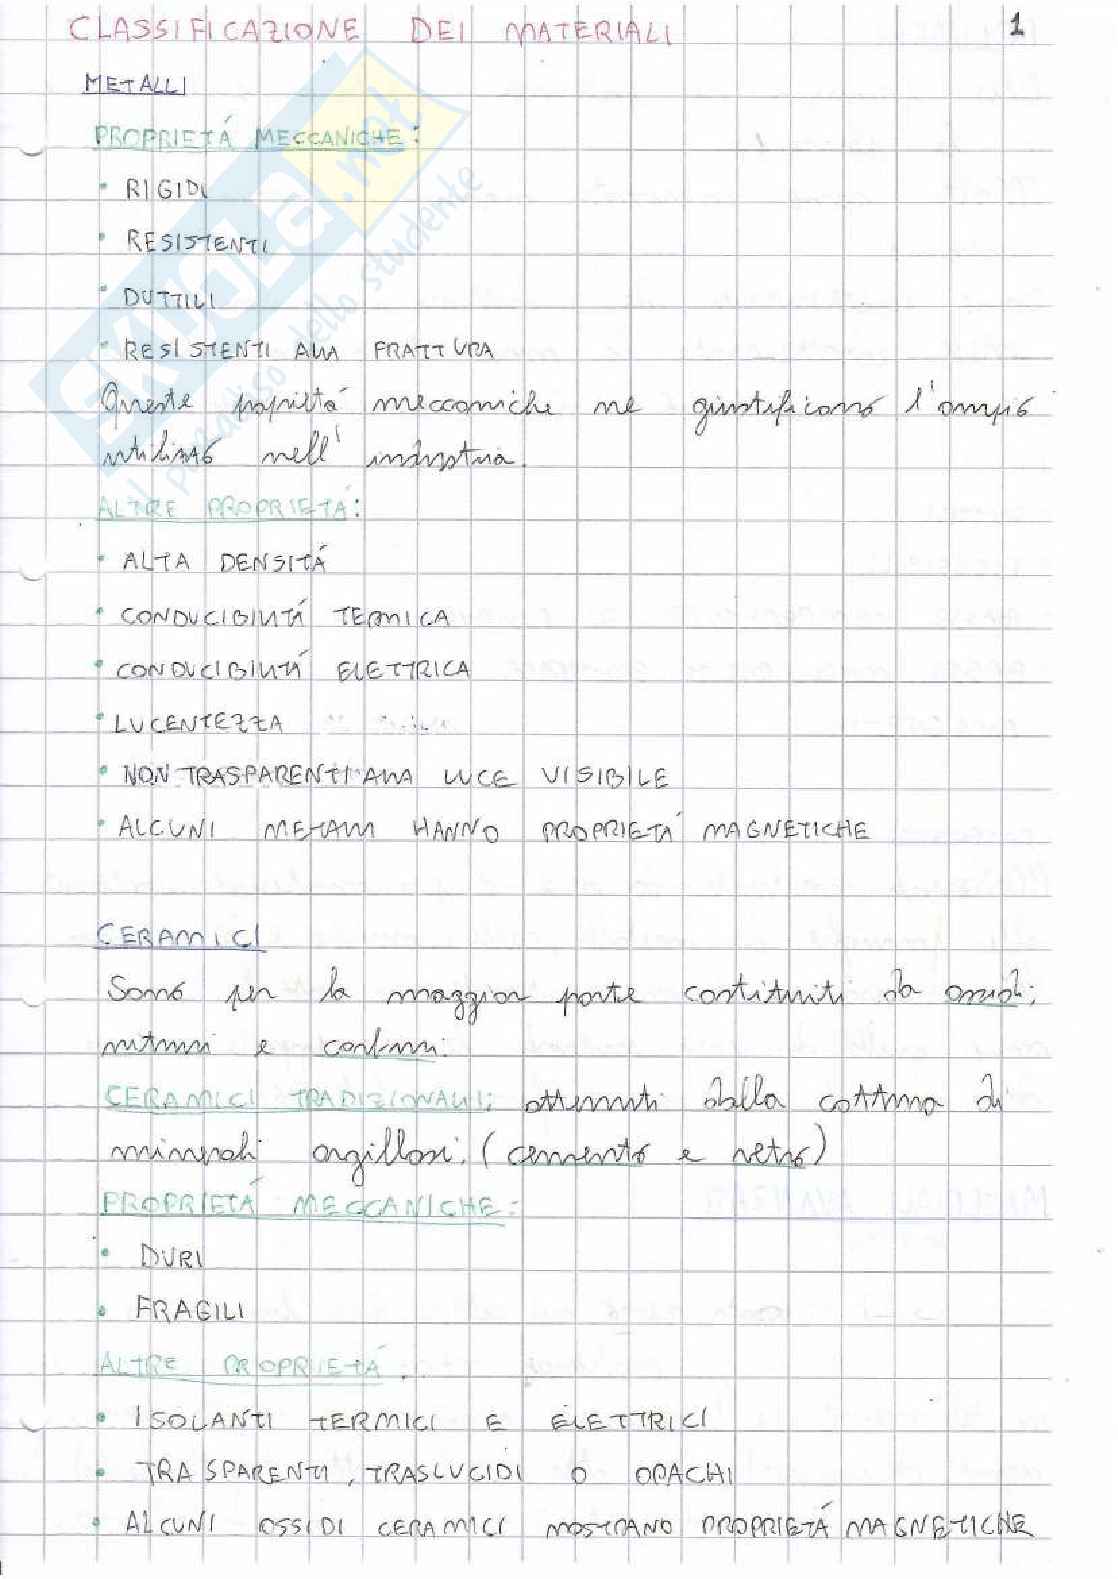 CLASSIFICAZIONE DEI MATERIALI 1
METALLI
PROPRIETÁ MECCANICHE:
• RIGIDI
• RESISTENTI
• DUTTILI
• RESISTENTI ALLA FRATTURA
Queste proprietá meccaniche ne giustificano l'ampio
utilizzo nell'industria.
ALTRE PROPRIETÁ:
• ALTA DENSITÁ
• CONDUCIBILITÁ TERMICA
• CONDUCIBILITÁ ELETTRICA
• LUCENTEZZA
• NON TRASPARENTI ALLA LUCE VISIBILE
• ALCUNI METALLI HANNO PROPRIETÁ MAGNETICHE
CERAMICI
Sono per la maggior parte costituiti da ossidi,
nitruri e carburi.
CERAMICI TRADIZIONALI: ottenuti dalla cottura di
minerali argillosi. (cemento e vetro)
PROPRIETÁ MECCANICHE:
• DURI
• FRAGILI
ALTRE PROPRIETÁ:
• ISOLANTI TERMICI E ELETTRICI
• TRASPARENTI, TRASLUCIDI O OPACHI
• ALCUNI OSSIDI CERAMICI MOSTRANO PROPRIETÁ MAGNETICHE
SKUOLA.net
il paradiso dello studente